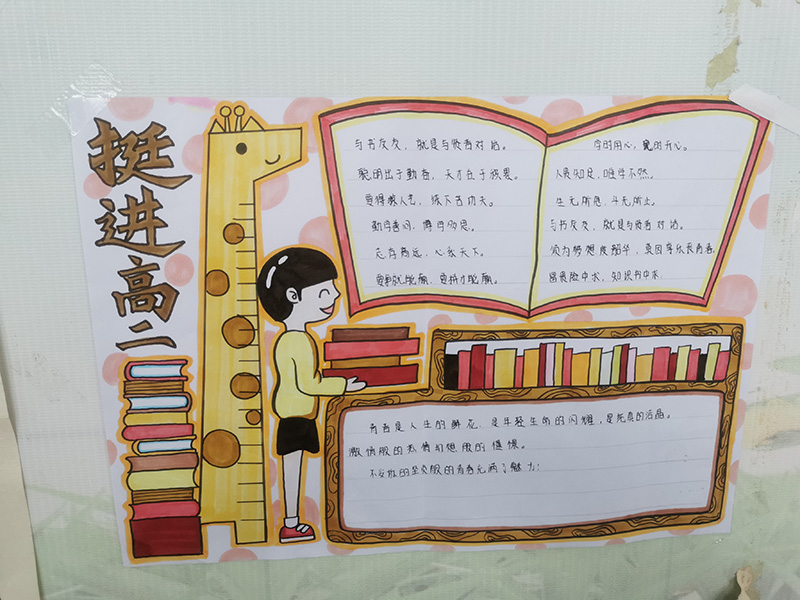 挺进高二
与书交友，就是与贤者对话。
聪明出于勤奋，天才在于积累。
要得惊人艺，须下苦功夫。
勤学善问，博学多思。
志存高远，心系天下。
要想就能赢，爱拼才能赢。
学时用心，玩时开心。
人贵知足，唯学不然。
生无所息，斗无所止。
与书为友，就是与贤者对话。
须为梦想度韶华，莫因享乐丧青春。
富贵险中求，知识书中求。
青春是人生的鲜花，是年轻生命的闪耀，是纯真的活晶。
激情般的热情幻想般的憧憬。
不安分的坐立般的青春充满了魅力！